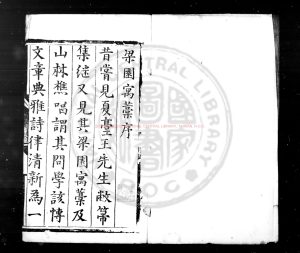 梁園寓藁序
昔嘗見夏臺王先生敝箒
集繼又見其梁園寓藁及
山林樵唱謂其問學該博
文章典雅詩律清新爲一